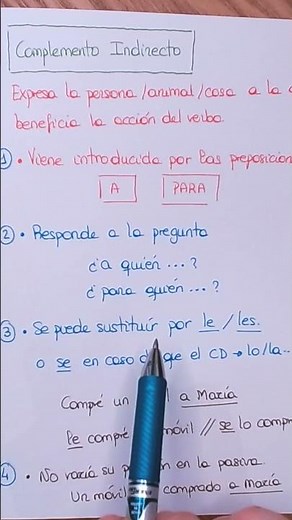 Complemento Indirecto
Expresa la persona/animal/cosa a la
beneficia la acción del verbo
① • Viene introducida por las preposicion
A PARA
② • Responde a la pregunta
¿a quién ... ?
¿para quién ... ?
③ • Se puede sustituir por le / les.
o se en caso de que el CD → lo/la...
Compé un a María
Le compré móvil // se lo compr
④ • No varía su en la pasiva.
Un móvil comprado a María